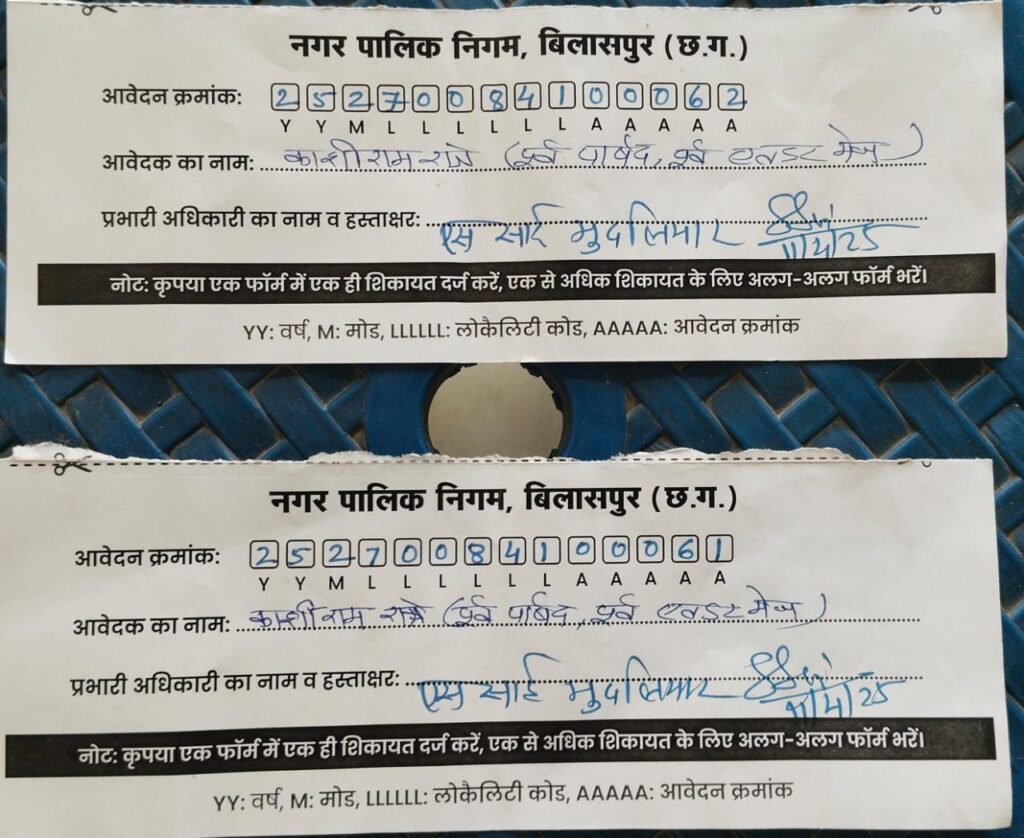 नगर पालिक निगम, बिलासपुर (छ.ग.)
आवेदन क्रमांक: 25270084100062
Y Y M L L L L L L A A A A A
आवेदक का नाम: काशीराम रात्रे (पूर्व पार्षद, पूर्व एल्डरमेन)
प्रभारी अधिकारी का नाम व हस्ताक्षर: एस साई मुदलियार 11/04/25
नोट: कृपया एक फॉर्म में एक ही शिकायत दर्ज करें, एक से अधिक शिकायत के लिए अलग-अलग फॉर्म भरें।
YY: वर्ष, M: मोड, LLLLLL: लोकैलिटी कोड, AAAAA: आवेदन क्रमांक
नगर पालिक निगम, बिलासपुर (छ.ग.)
आवेदन क्रमांक: 25270084100061
Y Y M L L L L L L A A A A A
आवेदक का नाम: काशीराम रात्रे (पूर्व पार्षद, पूर्व एल्डरमेन)
प्रभारी अधिकारी का नाम व हस्ताक्षर: एस साई मुदलियार 11/04/25
नोट: कृपया एक फॉर्म में एक ही शिकायत दर्ज करें, एक से अधिक शिकायत के लिए अलग-अलग फॉर्म भरें।
YY: वर्ष, M: मोड, LLLLLL: लोकैलिटी कोड, AAAAA: आवेदन क्रमांक